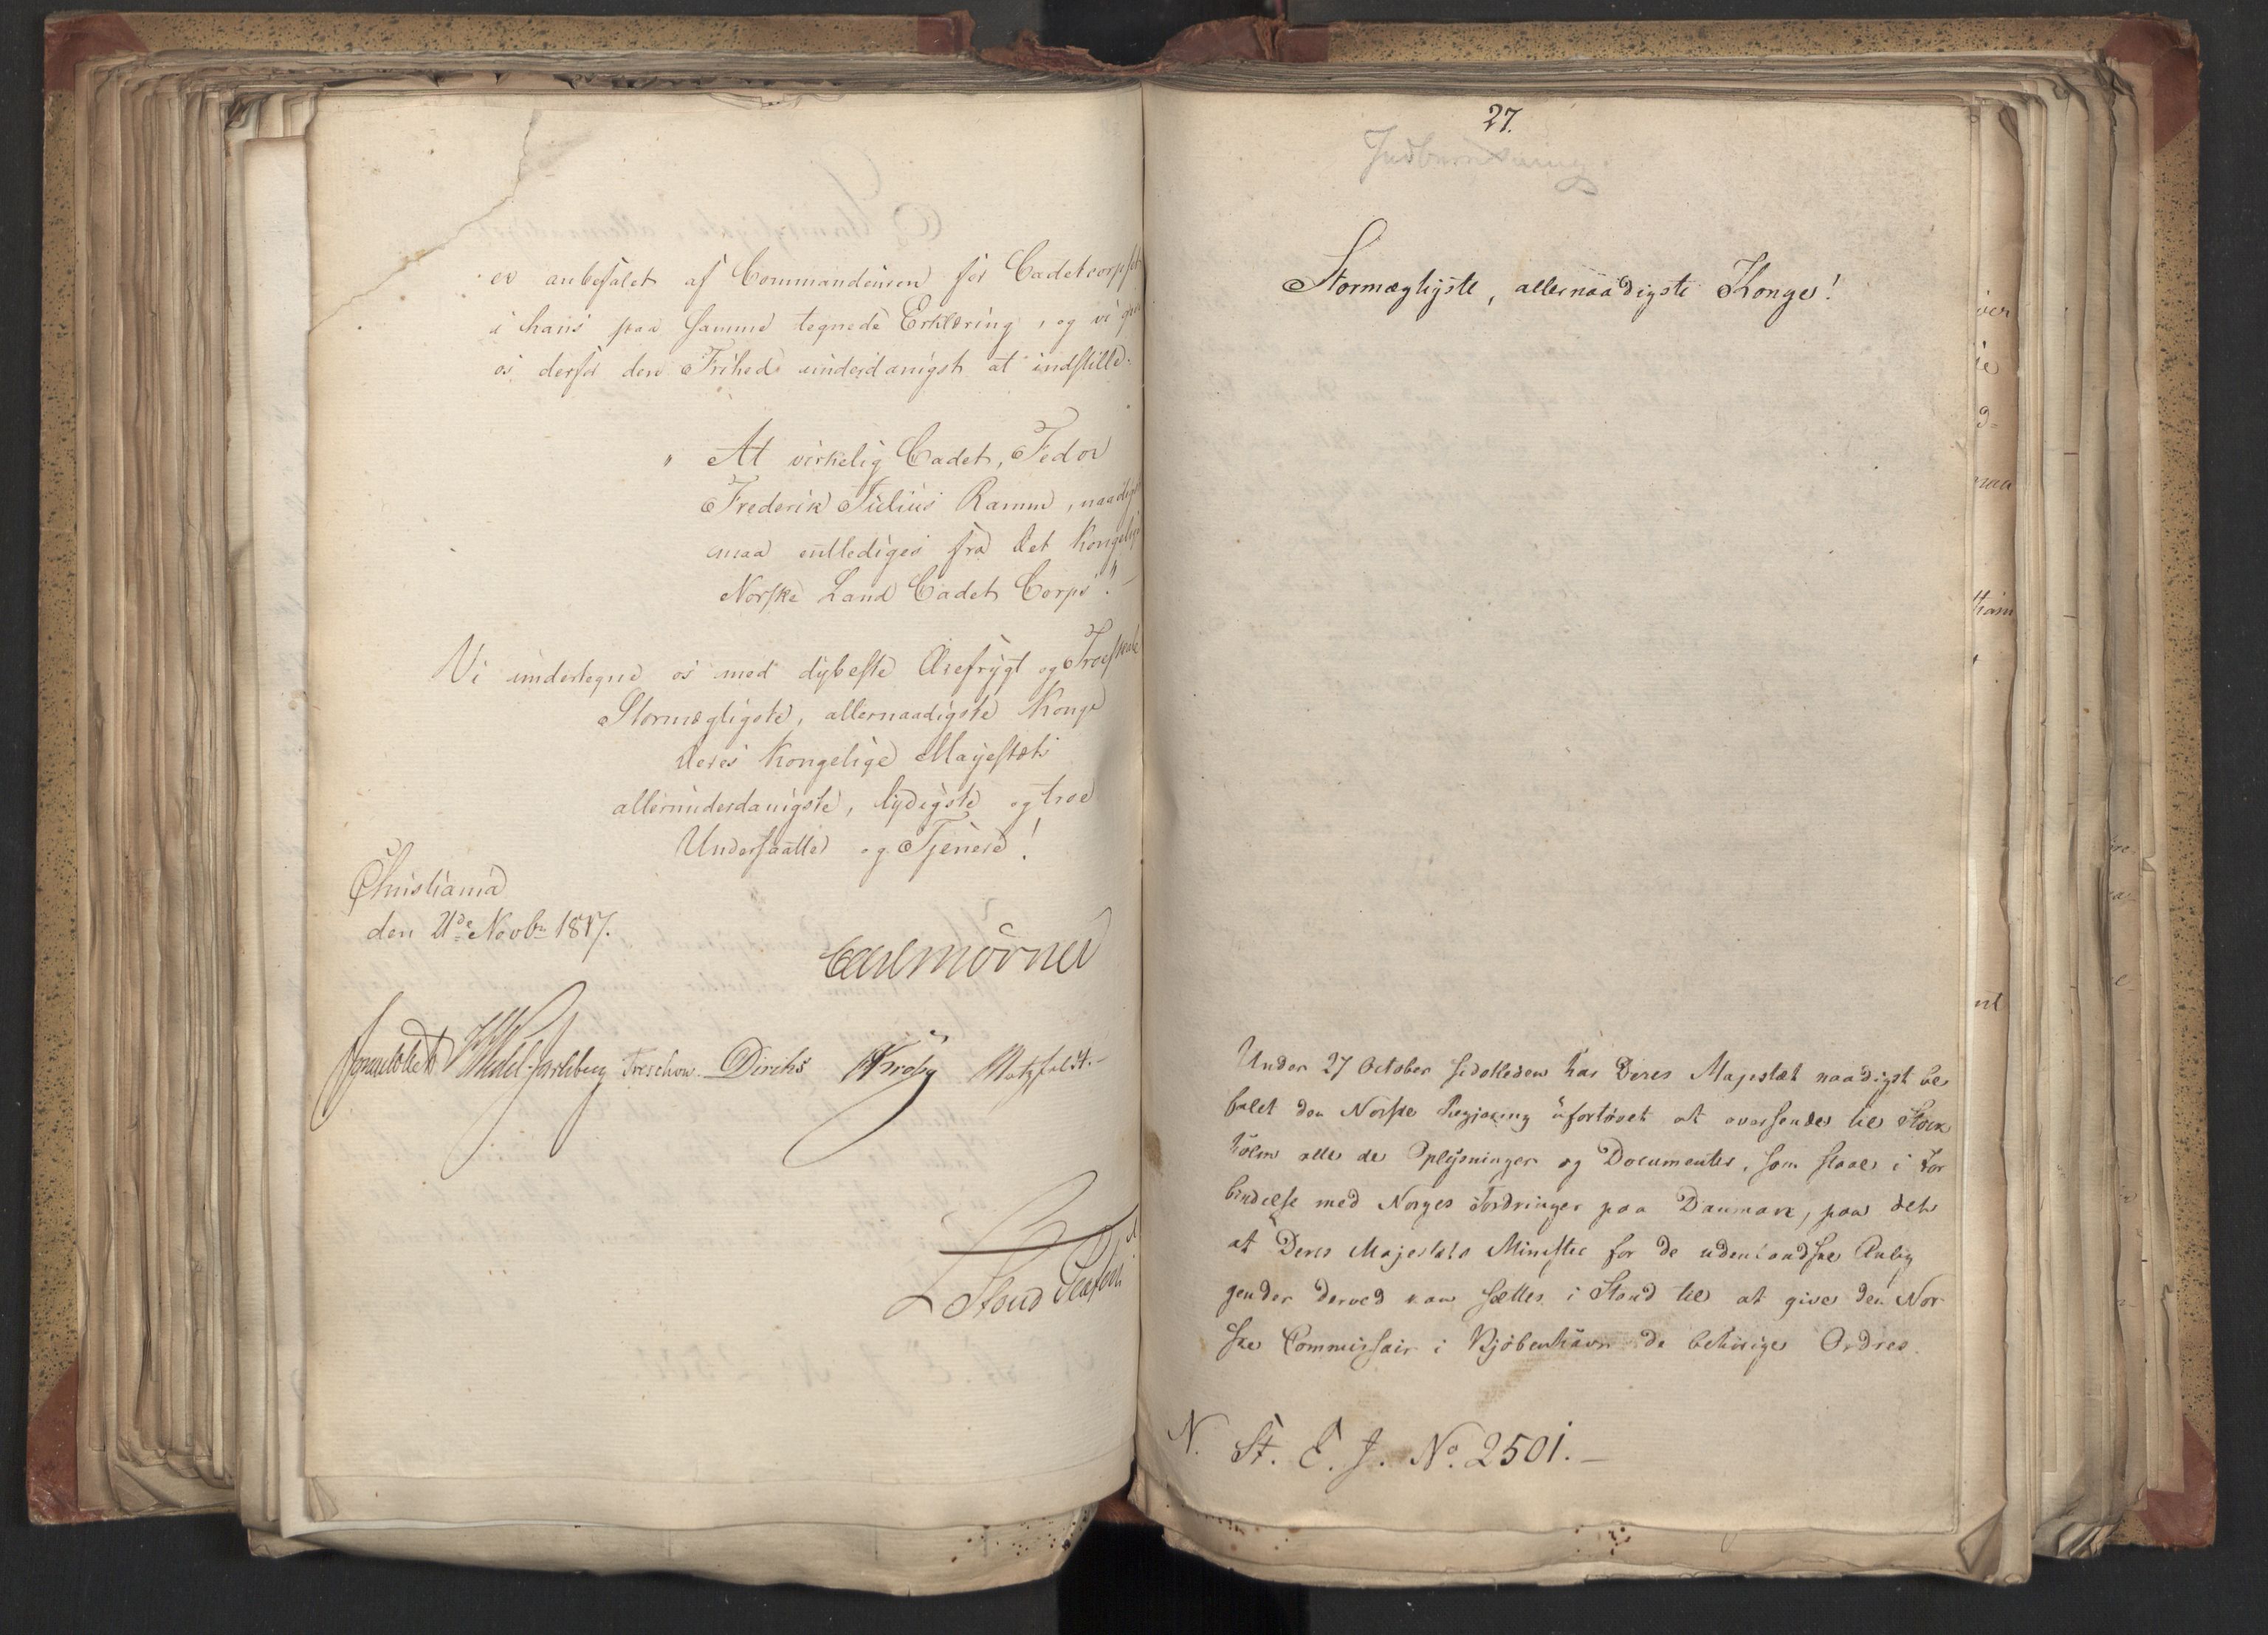 er anbefalet af Commandeuren for Cadetcorpset
i hans paa samme tegnede Erklæring, og vi
os derfor den Frihed underdanigst at indstille.
" At virkelig Cadet, Fedor
Frederik Julius Ramm, naadigst
maa entlediges fra det Kongelige
Norske Land Cadet Corps". —
Vi undertegne os med dybeste Ærefrygt og Troeskab
Stormægtigste, allernaadigste Konge
Deres Kongelige Majestæts
allerunderdanigste, lydigste og troe
Undersaatter og Tjenere!
Christiania
den 21de Novbr 1817.
Carl Mörner
Sommerhielm Wedel-Jarlsberg Treschow Diriks Krog Motzfeldt. —
27.
Indberetning.
Stormægtigste, allernaadigste Konge!
Under 27 October sidstleden har Deres Majestæt naadigst be
falet den Norske Regjering ufortøvet at oversende til Stock
holm alle de Oplysninger og Documenter, som staae i For
bindelse med Norges Fordringer paa Danmark, paa det
at Deres Majestæts Minister for de udenlandske Anlig
gender derved kan sættes i Stand til at give den Nor
ske Commissair i Kjøbenhavn de behørige Ordres.
N. St. E. J. No. 2501. —